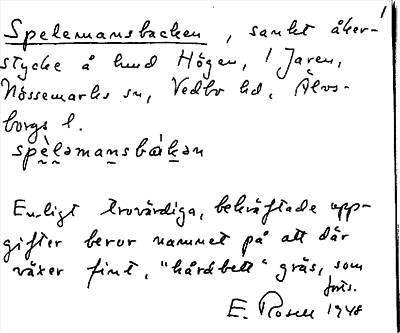 Spelemansbacken, sankt åker-
stycke å hmd Högen, 1 Jaren,
Nössemarks sn, Vedbo hd, Älvs-
borgs l.
spè̱l̠əman̠sbák̠ən
Enligt trovärdiga, bekräftade upp-
gifter beror namnet på att där
växer fint, "hårdbett" gräs, som
forts.
E. Rosell 1948